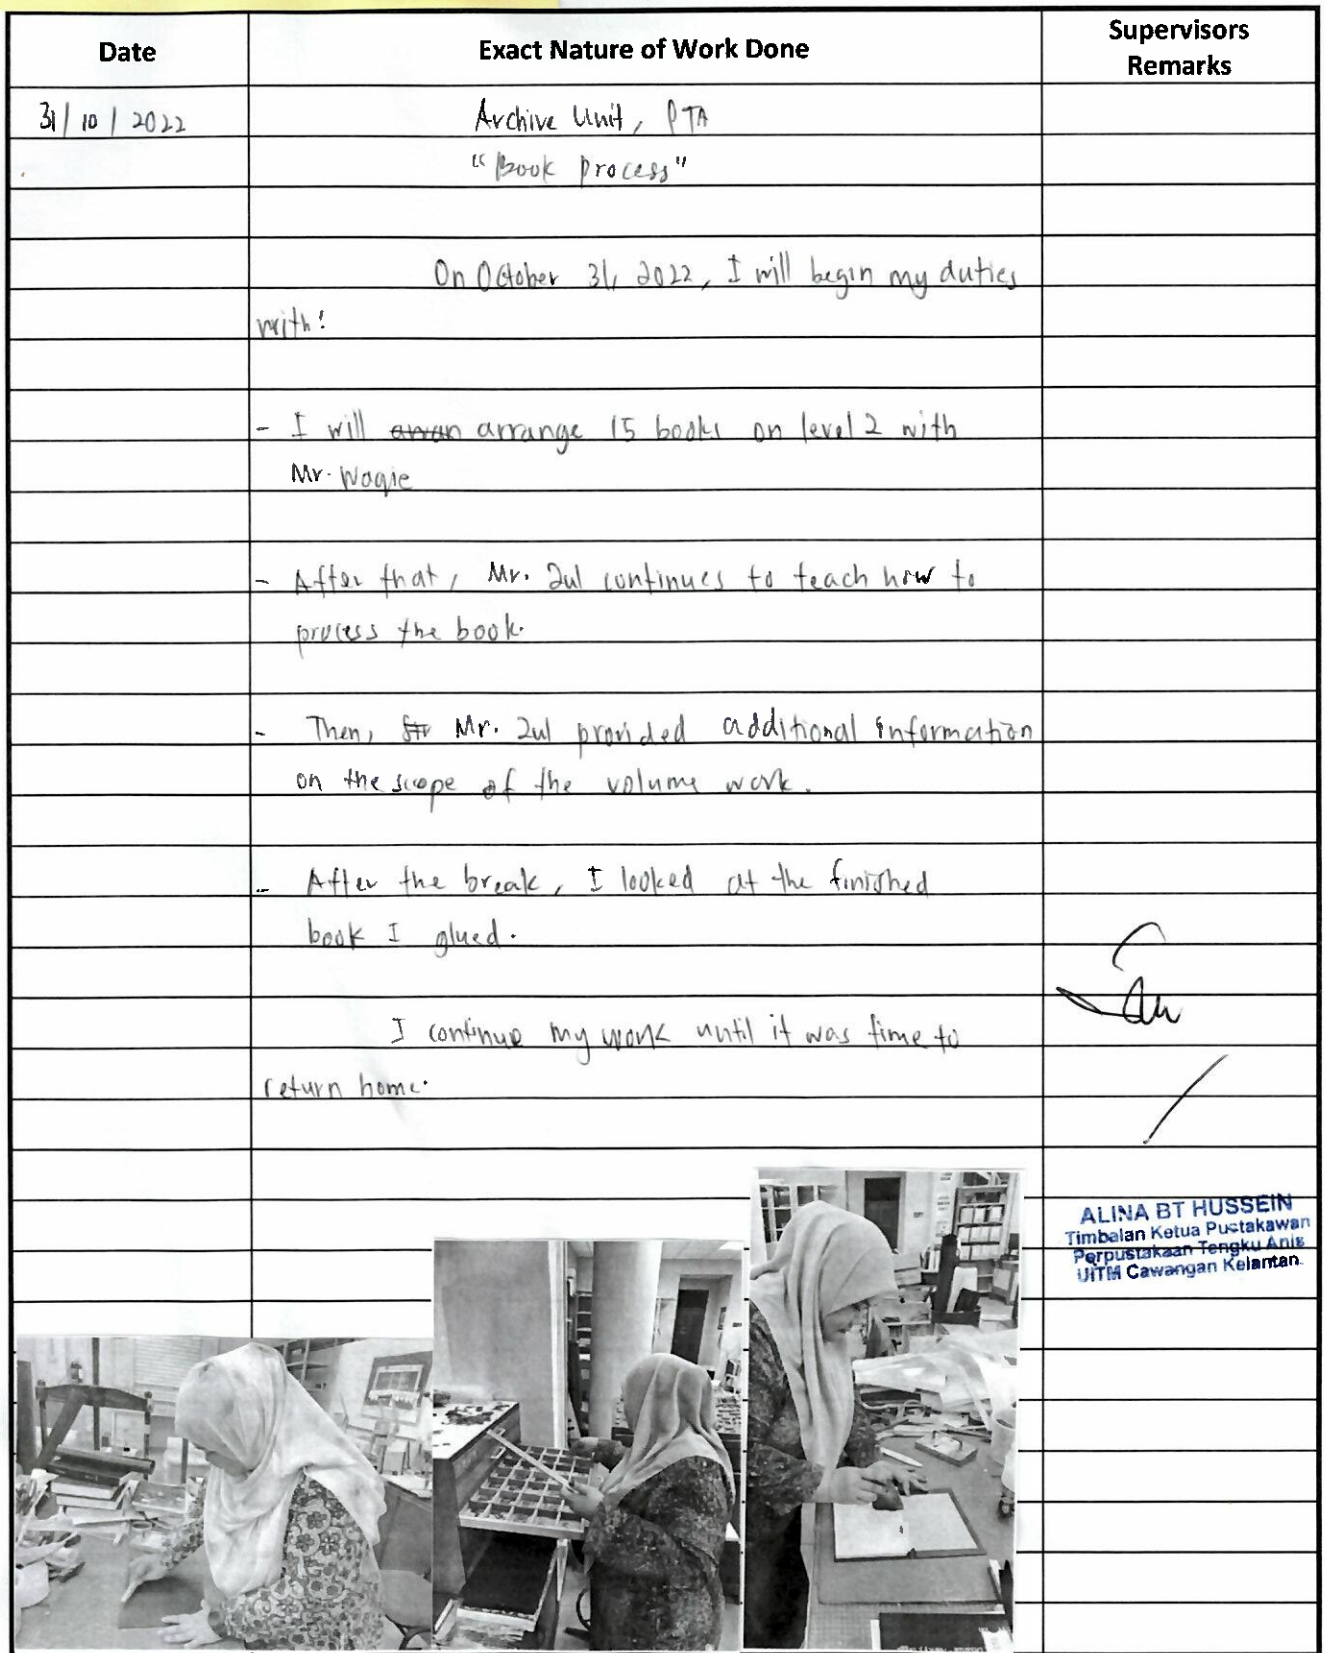 Date
Exact Nature of Work Done
Supervisors
Remarks
31/10/2022
Archive Unit, PTA
"Book process"
On October 31, 2022, I will begin my duties
with:
- I will arrange 15 books on level 2 with
Mr. Waqie
- After that, Mr. Zul continues to teach how to
process the book.
- Then, Mr. Zul provided additional information
on the scope of the volume work.
- After the break, I looked at the finished
book I glued.
I continue my work until it was time to
return home.
ALINA BT HUSSEIN
Timbalan Ketua Pustakawan
Perpustakaan Tengku Anis
UiTM Cawangan Kelantan.